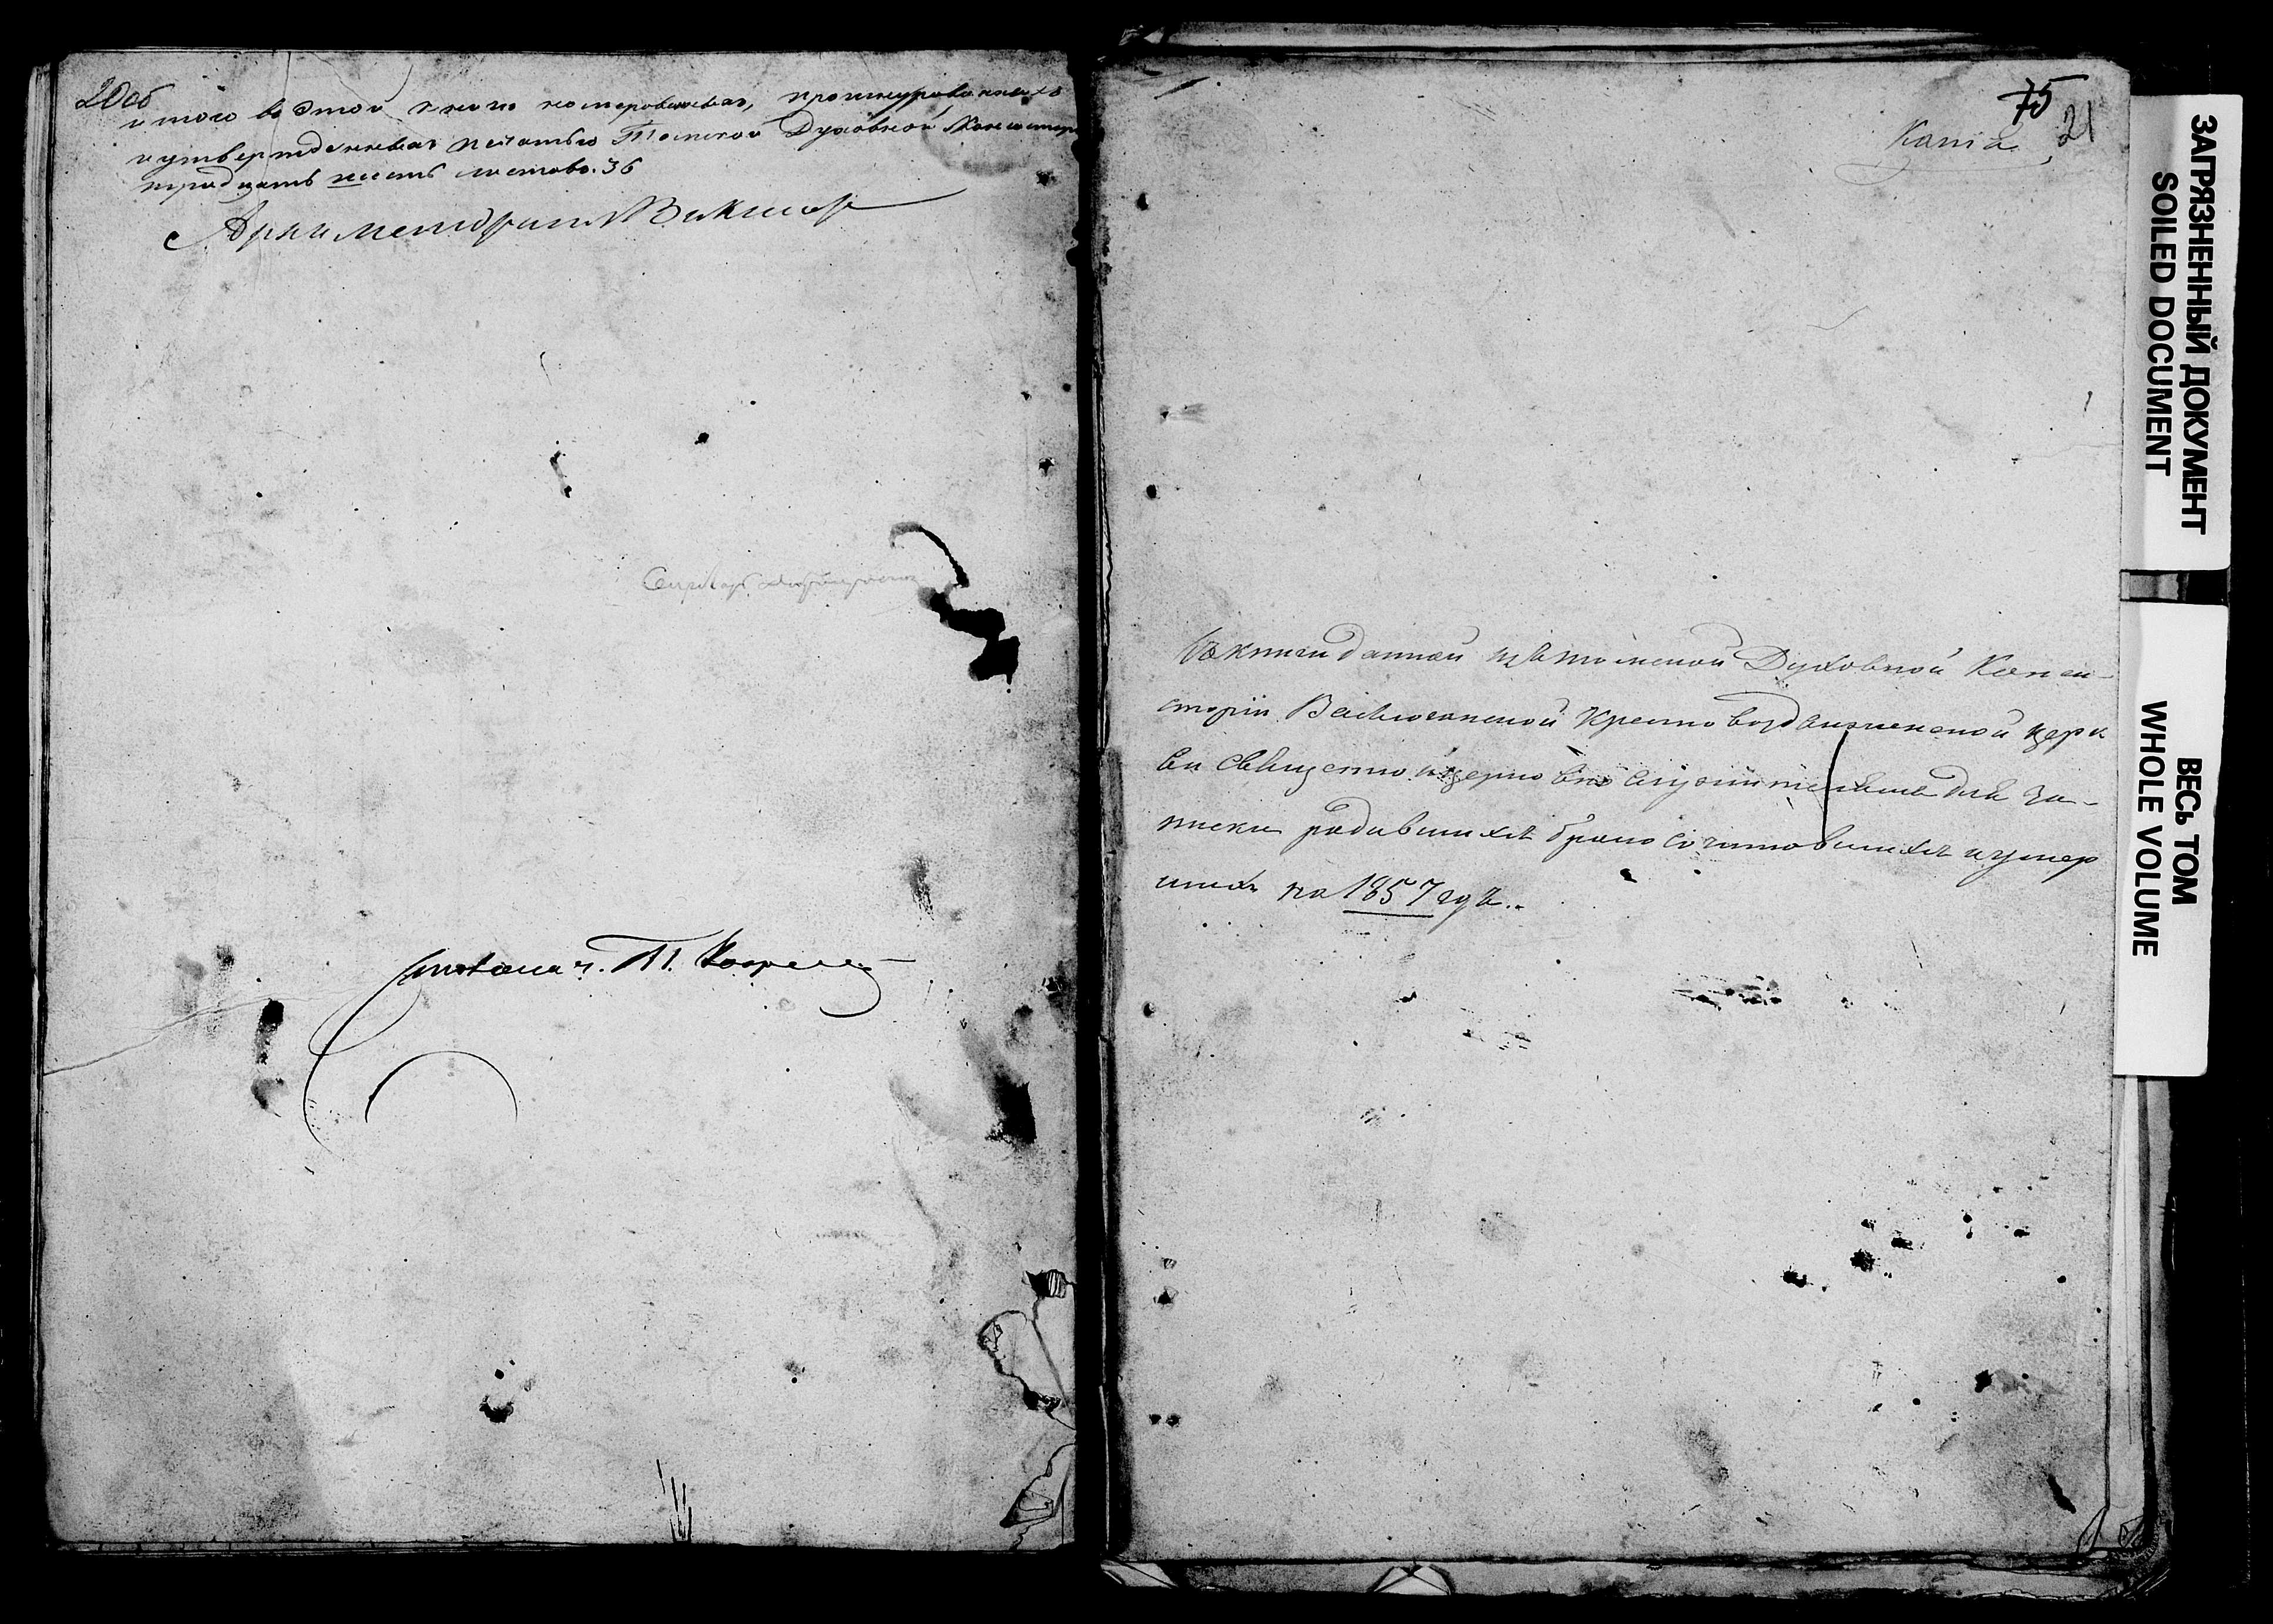 20об
итого въ этой книгѣ номерованныхъ, прошнурованныхъ
и утвержденныхъ печатью Томской Духовной Консисторіи
тридцать шесть листовъ. 36
Архимандритъ Викторъ
Секретарь
Столонач.
75
21
Копія
Съ книги данной изъ томской Духовной Конси-
сторіи Васюганской Крестовоздвиженской церк
ви священно и церковно служителямъ для за-
писки родившихся бракосочетовшихся и умер
шихъ на 1857 годъ..
ЗАГРЯЗНЕННЫЙ ДОКУМЕНТ
SOILED DOCUMENT
ВЕСЬ ТОМ
WHOLE VOLUME